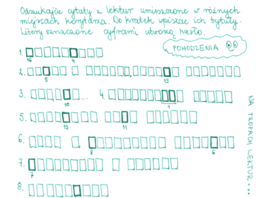 Odszukajcie cytaty z lektur umieszczone w różnych
miejscach korytarza. Do kratek wpiszcie ich tytuły.
Litery oznaczone cyframi utworzą hasło.
POWODZENIA
1.
2.
3. 4.
5.
6.
7.
8.
NA TROPACH LEKTUR...